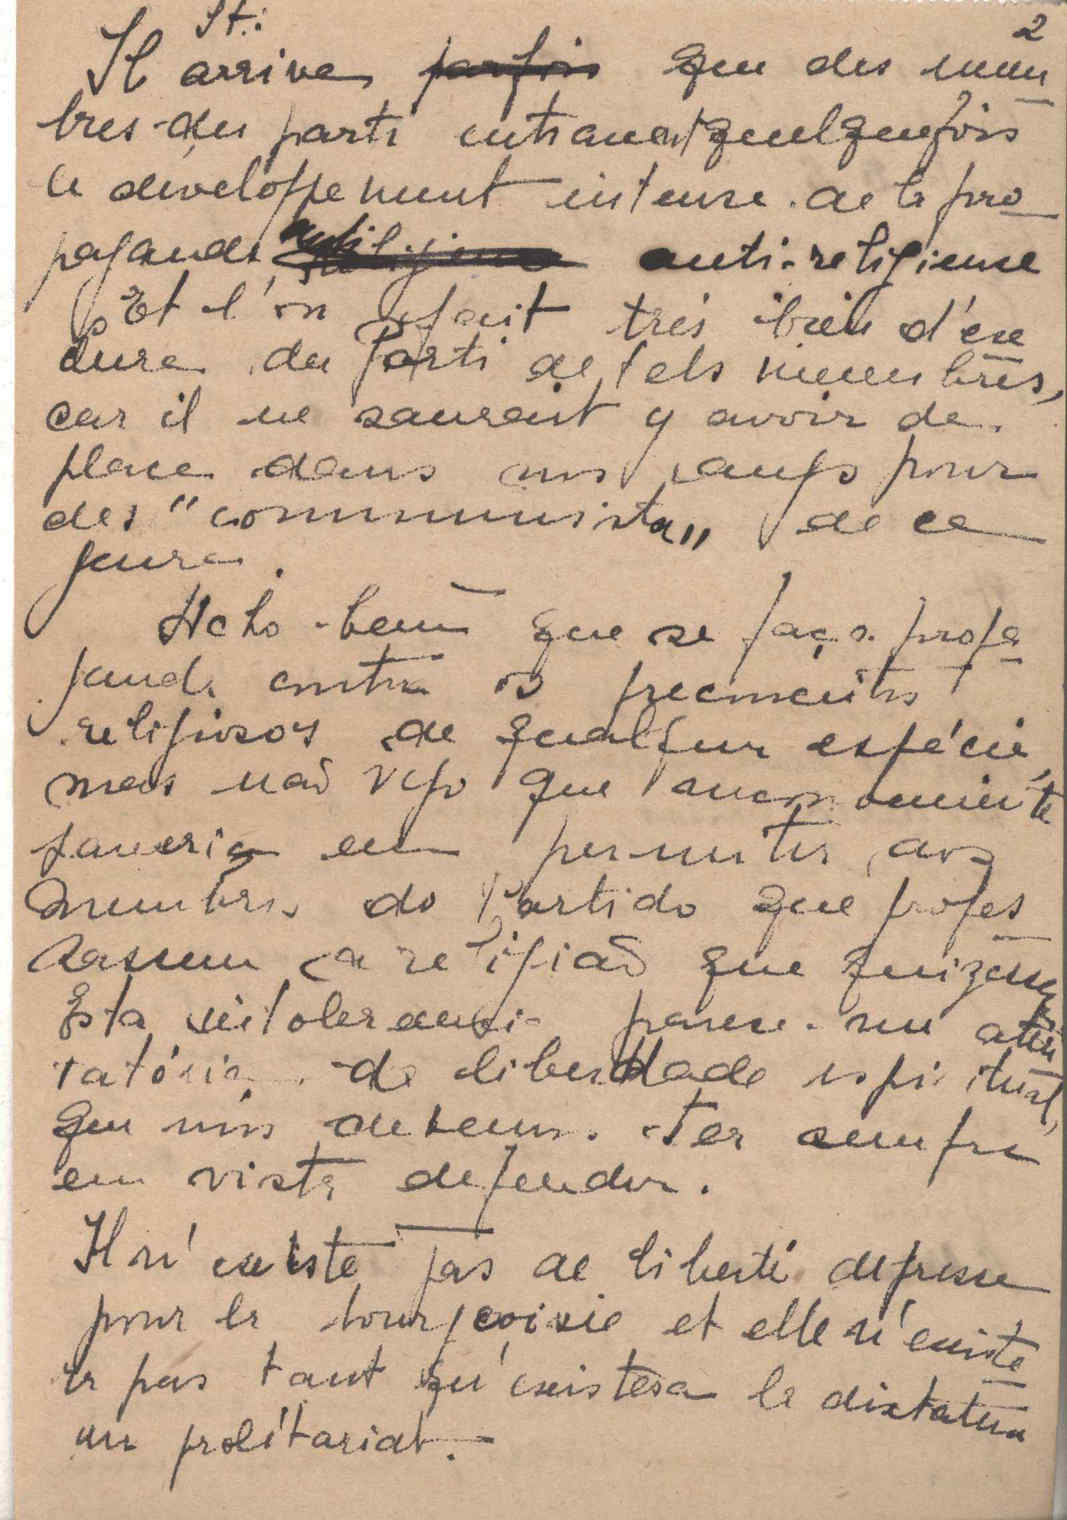 St.:
2
Il arrive parfois que des mem
bres du parti entravent quelquefois
le développement intense de la pro
pagande anti-religieuse
Et l'on fait très bien d'ex
clure du Parti de tels membres,
car il ne saurait y avoir de
place dans nos rangs pour
des "communistes" de ce
genre.
Acho bem que se faça propa
ganda contra os preconceitos
religiosos de qualquer espécie,
mas não vejo que inconveniente
haveria em permitir aos
membros do Partido que profes
sassem a religião que quizessem
Esta intolerancia parece-me aten
tatória da liberdade espiritual,
que nós devemos ter sempre
em vista defender.
Il n'existe pas de liberté de presse
pour la bourgeoisie et elle n'existe
ra pas tant qu'existera la dictature
du prolétariat.-